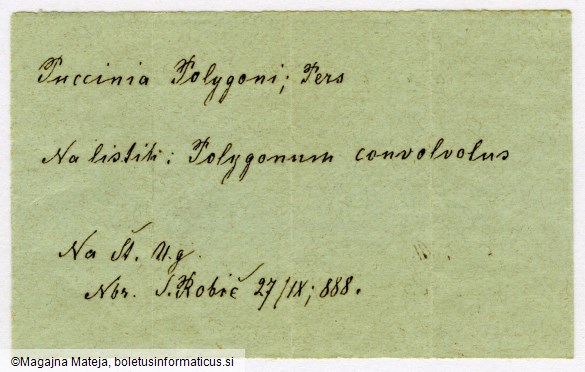 Puccinia Polygoni; Pers
Na listih: Polygonum convolvolus
Na Št. U.g.
Nbr. S. Robič 27/IX; 888.
©Magajna Mateja, boletusinformaticus.si